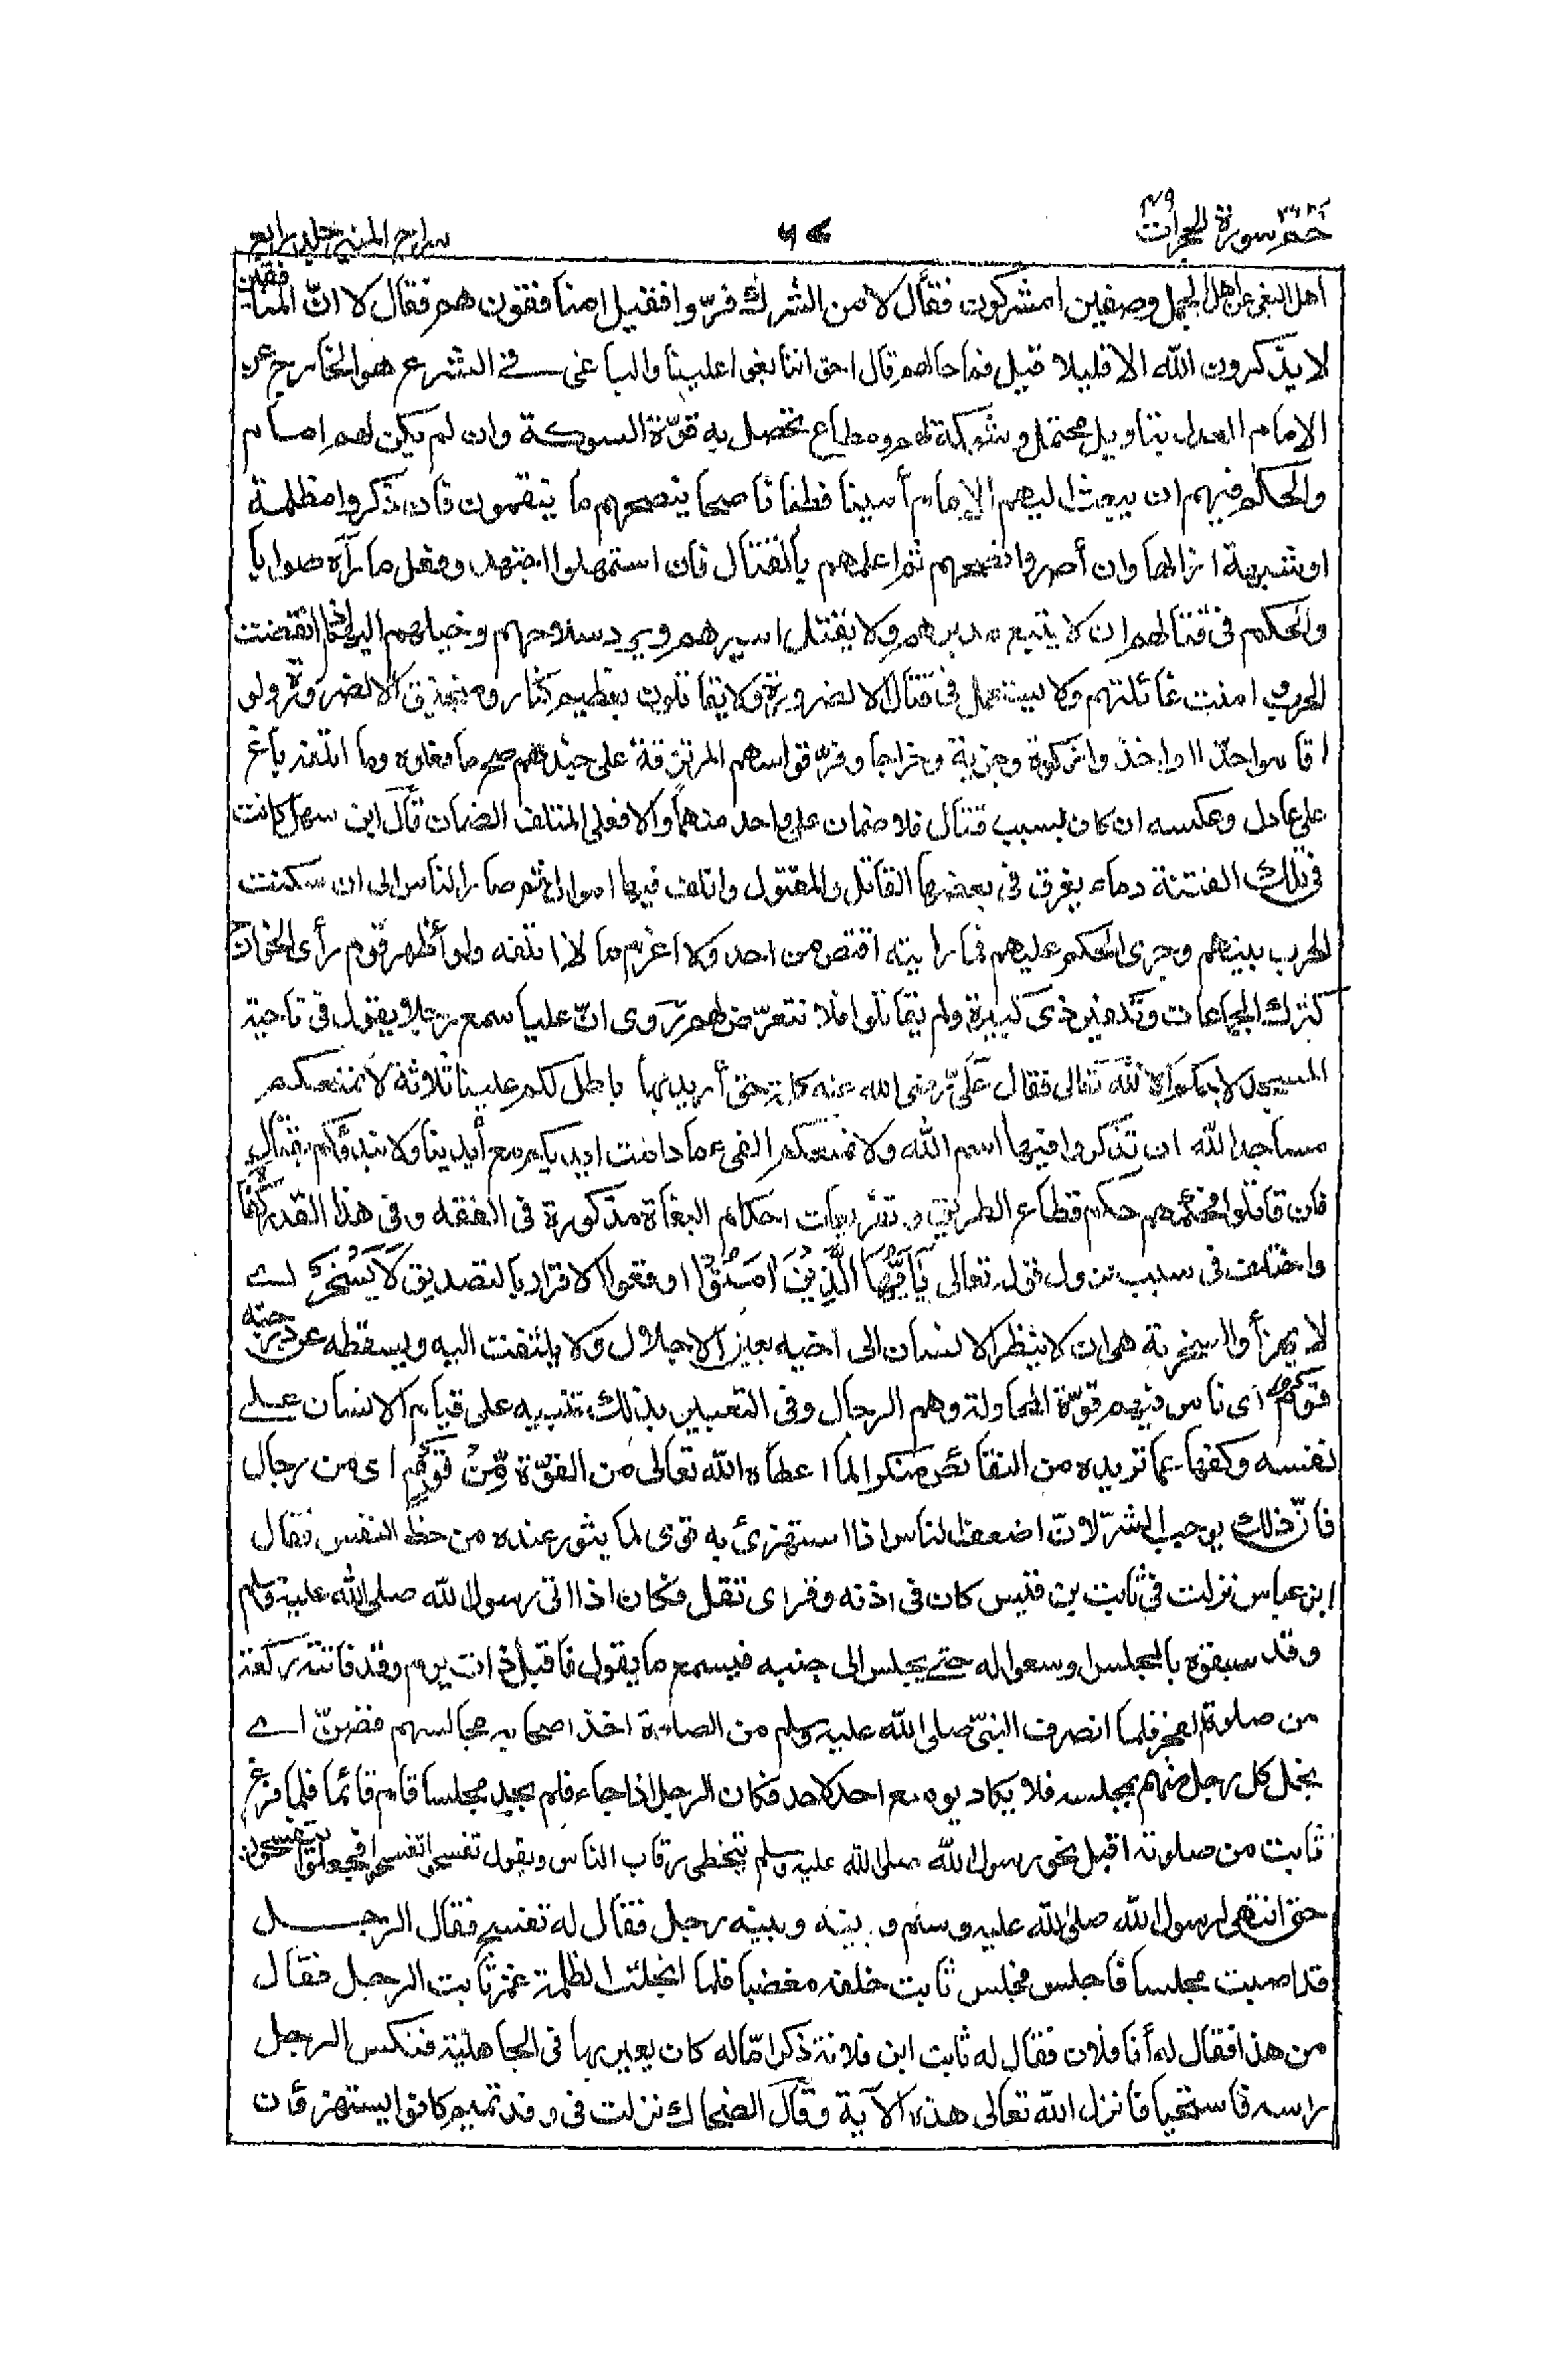 حٰمٓ ٢٦ سورة الحجرات ٤٩
٦٧
سراج المنير جلد رابع
اهل البغى عن اهل الجمل وصفين امشركون فقال لا من الشرك فرّوا فقيل امنافقون هم فقال لا انّ المنافقين
لا يذكرون الله الا قليلا قيل فما حالهم قال اخواننا بغوا علينا والباغى فے الشرع هو الخارج عن
الامام العدل بتاويل محتمل وشوكة لهم ومطاع تحصل به قوّة الشوكة وان لم يكن لهم امام
والحكم فيهم ان يبعث اليهم الامام أمينا فطنا ناصحا ينصحهم ما ينقمون فان ذكروا مظلمة
اوشبهة ازالها وان أصروا نصحهم ثم اعلمهم بالقتال فان استمهلوا اجتهد وفعل ما رآه صوابا
والحكم فى قتالهم ان لا يتبع مدبرهم ولا يقتل اسيرهم ويرد سلاحهم وخيلهم اليهم اذا انقضت
الحرب وامنت غائلتهم ولا يستعمل فى قتال الا لضرورة ولا يقاتلون بعظيم كنار ومنجنيق الا لضرورة ولو
اقاموا حدّا او اخذوا زكوة وجزية وخراجا وفرّقوا سهم المرتزقة على جندهم صح ما فعلوه وما اتلفه باغ
على عادل وعكسه ان كان بسبب قتال فلا ضمان على واحد منهما والا فعلى المتلف الضمان قال ابن سهل كانت
فى تلك الفتنة دماء يعرف فى بعضها القاتل والمقتول واتلف فيها اموال ثم صار الناس الى ان سكنت
الحرب بينهم وجرى الحكم عليهم فما رايته اقتص من احد ولا اغرم مالا اتلفه ولو أظهر قوم رأى الخوارج
كترك الجماعات وتكفير ذى كبيرة ولم يقاتلوا فلا نتعرّض لهم روى انّ عليا سمع رجلا يقول فى ناحية
المسجد لا حكم الا لله تعالى فقال علىّ رضى الله عنه كلمة حق أريد بها باطل لكم علينا ثلاثة لا نمنعكم
مساجد الله ان تذكروا فيها اسم الله ولا نمنعكم الفئ ما دامت ايديكم مع أيدينا ولا نبدؤكم بقتال
فان قاتلوا فحكمهم حكم قطاع الطريق وتفريعات احكام البغاة مذكورة فى الفقه وفى هذا القدر كفاية
واختلف فى سبب نزول قوله تعالى يَا أَيُّهَا الَّذِينَ آمَنُوا اوقعوا الاقرار بالتصديق لَا يَسْخَرْ اے
لا يهزأ والسخرية هى ان لا ينظر الانسان الى اخيه بعين الاجلال ولا يلتفت اليه ويسقطه عن درجته
قَوْمٌ اى ناس فيهم قوّة المحاولة وهم الرجال وفى التعبير بذلك تنبيه على قيام الانسان علے
نفسه وكفها عما تريده من النقائص منكرا لما اعطاه الله تعالى من القوّة مِّنْ قَوْمٍ اى من رجال
فانّ ذلك يوجب الشرّ لانّ اضعف الناس اذا استهزئ به قوى لما يثور عنده من حظ النفس فقال
ابن عباس نزلت فى ثابت بن قيس كان فى اذنه وقر اى ثقل فكان اذا اتى رسول الله صلى الله عليه وسلم
وقد سبقوه بالمجلس اوسعوا له حتے يجلس الى جنبه فيسمع ما يقول فاقبل ذات يوم وقد فاتته ركعة
من صلوة الفجر فلما انصرف النبىّ صلى الله عليه وسلم من الصلوة اخذ اصحابه مجالسهم فضنّ اے
بخل كل رجل منهم بمجلسه فلا يكاد يوسع احد لاحد فكان الرجل اذا جاء فلم يجد مجلسا قام قائما فلما فرغ
ثابت من صلوته اقبل نحو رسول الله صلى الله عليه وسلم يتخطى رقاب الناس ويقول تفسحوا تفسحوا فجعلوا يتفسحون
حتى انتهى الى رسول الله صلى الله عليه وسلم وبينه وبينه رجل فقال له تفسح فقال الرجل
قد اصبت مجلسا فاجلس فجلس ثابت خلفه مغضبا فلما انجلت الظلمة غمز ثابت الرجل فقال
من هذا فقال له أنا فلان فقال له ثابت ابن فلانة ذكر امّا له كان يعير بها فى الجاهلية فنكس الرجل
راسه فاستحيا فانزل الله تعالى هذه الآية وقال الضحاك نزلت فى وفد تميم كانوا يستهزؤن